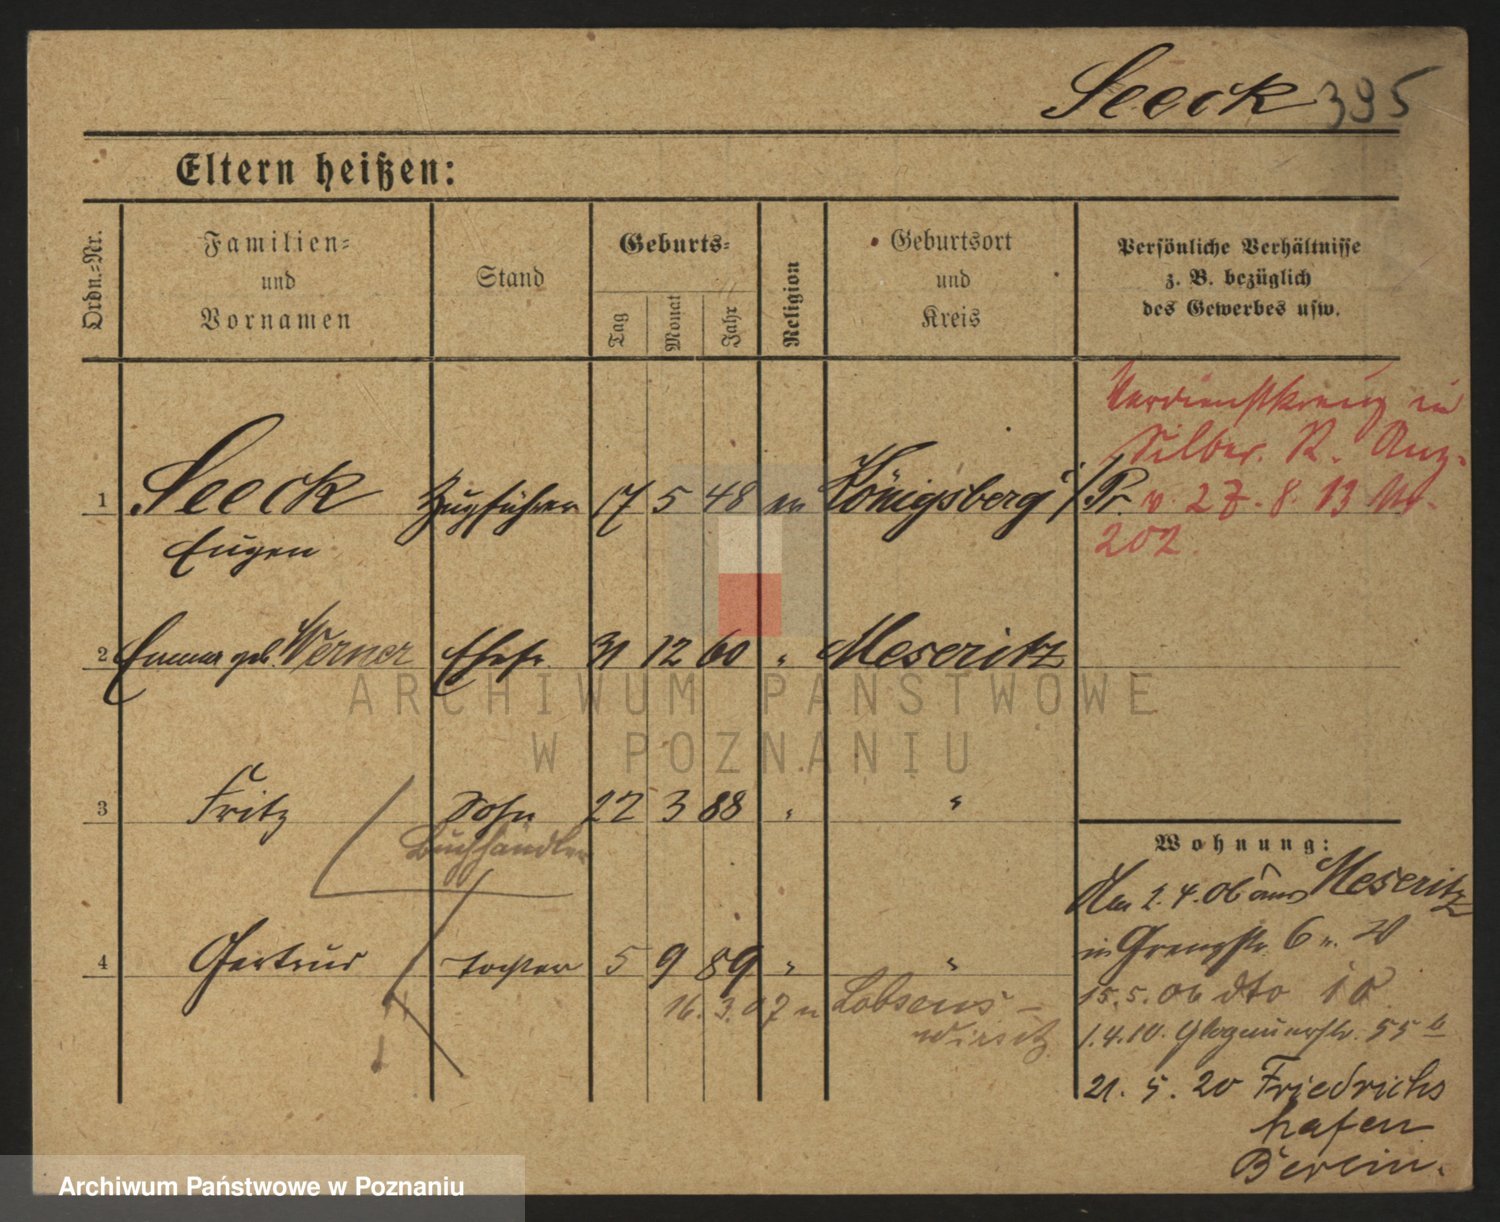 Seeck 395
Eltern heißen:
Ordn.-Nr.
Familien-
und
Vornamen
Stand
Geburts-
Tag
Monat
Jahr
Religion
Geburtsort
und
Kreis
Persönliche Verhältnisse
z. B. bezüglich
des Gewerbes usw.
Verdienstkreuz in
Silber. R. Anz.
v. 27. 8. 13 Nr.
202.
1 Seeck Zugführer 17 5 48 ev Königsberg i/Pr.
Eugen
2 Emma geb. Werner Ehefr. 31 12 60 " Meseritz
3 Fritz Sohn 22 3 88 " "
Buchhändler
4 Gertrud Tochter 5 9 89 " "
16. 3. 07 n Lobsens -
Wirsitz
Wohnung:
Am 2.4.06 aus Meseritz
in Grenzstr. 6
15.5.06 dto 10
1.4.10. Glogauerstr. 55
21. 5. 20 Friedrichs
hafen
Berlin.
ARCHIWUM PAŃSTWOWE
W POZNANIU
Archiwum Państwowe w Poznaniu